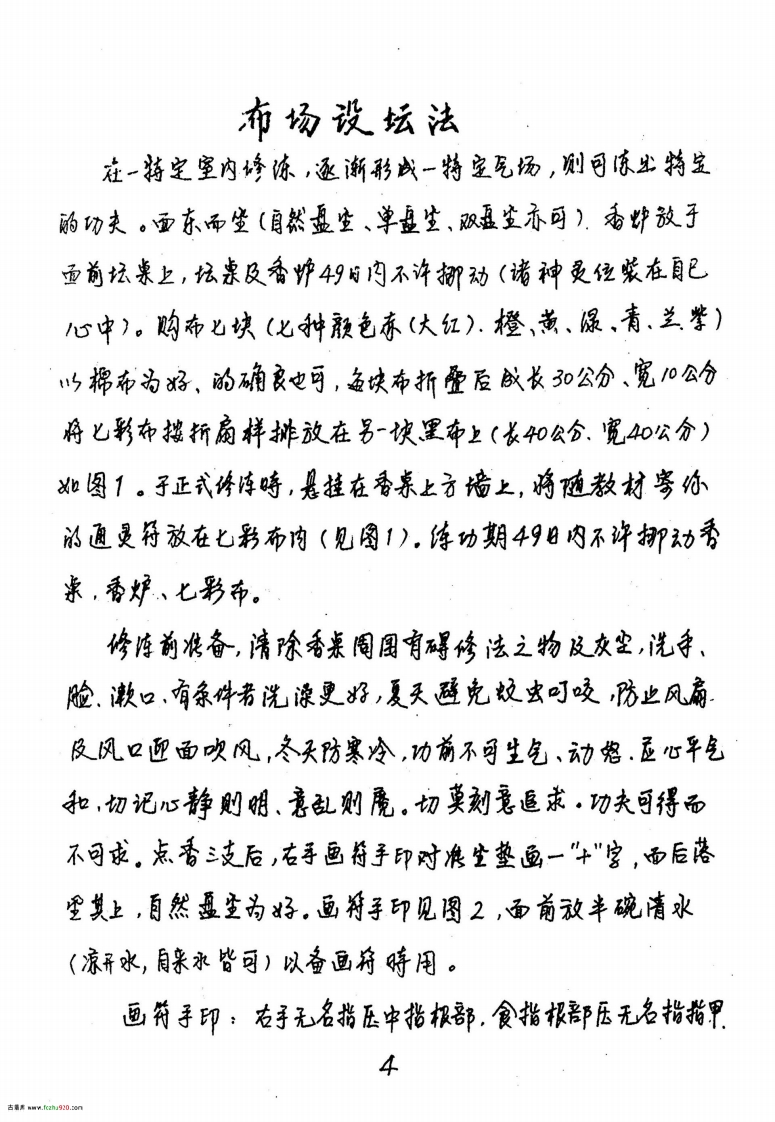 布场设坛法
在一特定室内修炼,逐渐形成一特定气场,则可冻出特定
的功夫。面东而坐(自然盘坐、单盘坐、双盘坐亦可).香炉放于
面前坛桌上,坛桌及香炉49日内不许挪动(诸神灵位装在自己
心中)。购布七块(七种颜色赤(大红).橙、黄、渌、青、兰.紫)
以棉布为好、的确良也可,每块布折叠后成长30公分、宽10公分
将七彩布按折扇样排放在另一块黑布上(长40公分.宽40公分)
如图1。于正式修炼时,悬挂在香桌上方墙上,将随教材寄你
的通灵符放在七彩布内(见图1)。练功期49日内不许挪动香
桌,香炉、七彩布。
修炼前准备,清除香桌周围有碍修法之物及灰尘,洗手、
脸、漱口、有条件者洗澡更好,夏天避免蚊虫叮咬,防止风扇
及风口迎面吹风,冬天防寒冷,功前不可生气、动怒.应心平气
和,切记心静则明、意乱则魔。切莫刻意追求·功夫可得而
不可求。点香三支后,右手画符手印对准坐垫画一"十"字,而后落
坐其上,自然盘坐为好。画符手印见图2,面前放半碗清水
(凉开水,自来水皆可)以备画符時用。
画符手印:右手无名指压中指根部,食指根部压无名指指甲.
4
古籍库 www.fczhu920.com